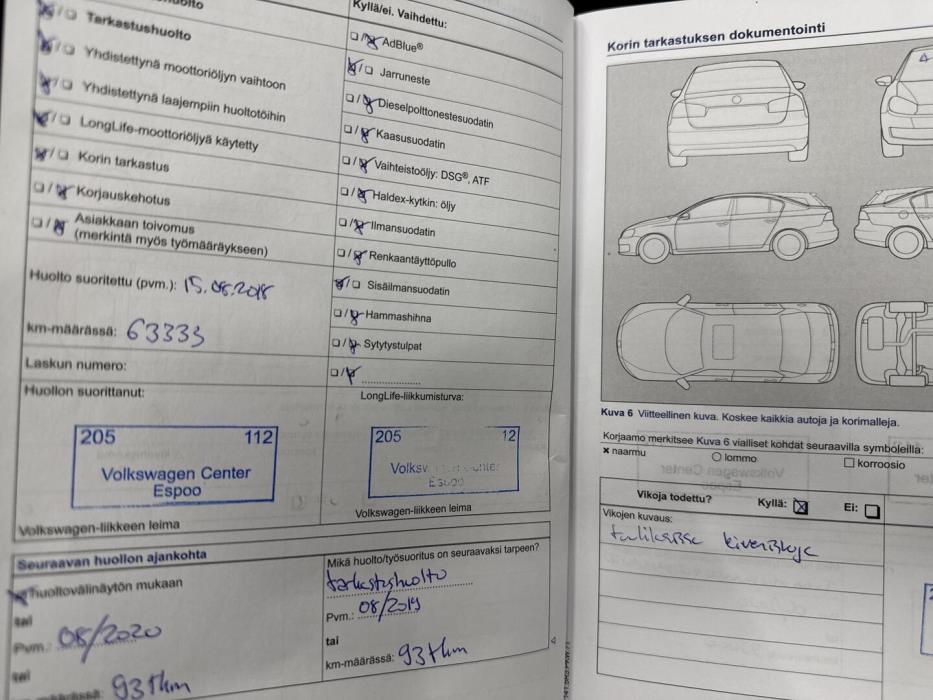 Kyllä/ei. Vaihdettu:
Tarkastushuolto
Yhdistettynä moottoriöljyn vaihtoon
Yhdistettynä laajempiin huoltotöihin
LongLife-moottoriöljyä käytetty
Korin tarkastus
Korjauskehotus
Asiakkaan toivomus
(merkintä myös työmääräykseen)
Huolto suoritettu (pvm.): 15.08.2018
km-määrässä: 63333
Laskun numero:
Huollon suorittanut:
205 112
Volkswagen Center
Espoo
Volkswagen-liikkeen leima
AdBlue®
Jarruneste
Dieselpolttonestesuodatin
Kaasusuodatin
Vaihteistoöljy: DSG®, ATF
Haldex-kytkin: öljy
Ilmansuodatin
Renkaantäyttöpullo
Sisäilmansuodatin
Hammashihna
Sytytystulpat
LongLife-liikkumisturva:
205 12
Espoo
Volkswagen-liikkeen leima
Seuraavan huollon ajankohta
huoltovälinäytön mukaan
tai
Pvm.: 08/2020
tai
km-määrässä: 93tkm
Mikä huolto/työsuoritus on seuraavaksi tarpeen?
tarkastushuolto
Pvm.: 08/2019
tai
km-määrässä: 93tkm
4
Korin tarkastuksen dokumentointi
Kuva 6 Viitteellinen kuva. Koskee kaikkia autoja ja korimalleja.
Korjaamo merkitsee Kuva 6 vialliset kohdat seuraavilla symboleilla:
naarmu lommo korroosio
Vikoja todettu? Kyllä: Ei:
Vikojen kuvaus:
tuulilasissa kiveniskuja